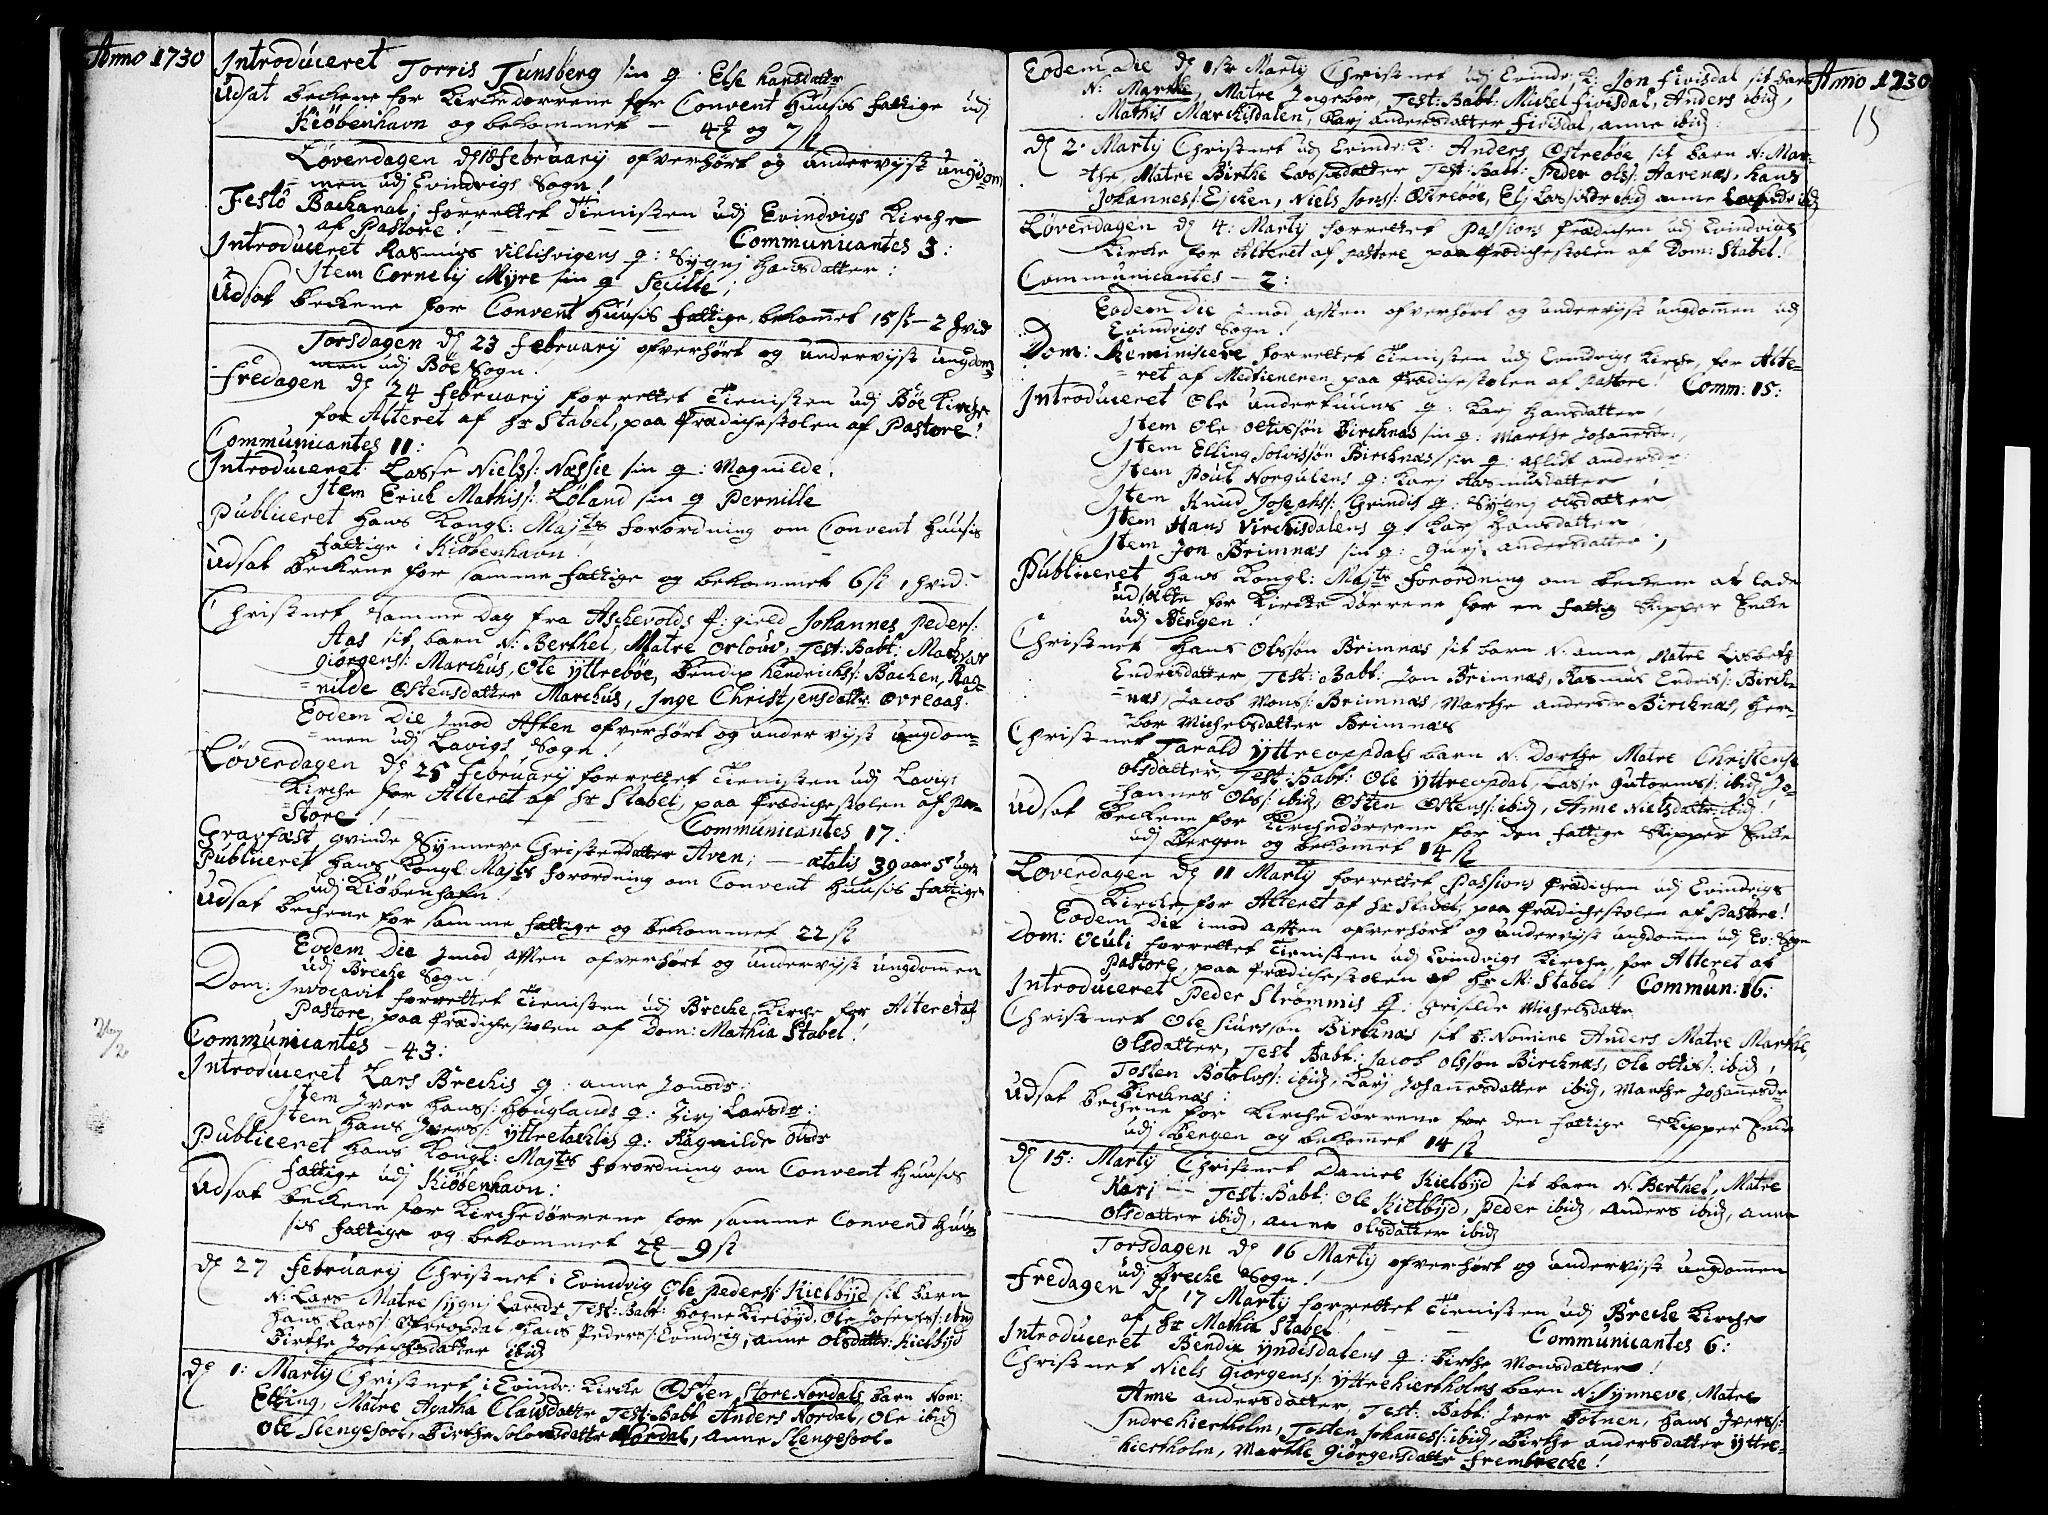 Anno 1730
Introduceret Torris Tunsberg sin q. Else hansdatter
Udsat beckene for Kirckedørrene for Convent Huusis fattige udj
Kiøbenhavn og bekommet — 4 og 7 ß
Løverdagen d 18 February ofverhørt og undervijst ungdom
men udj Evindvigs Sogn!
Festo Bachanal: forrettet Tienisten udj Evindvigs Kirche
af Pastore! Communicantes 3:
Introduceret Rasmus Villisvigens q: Sygnj hansdatter:
Item Cornelij Myre sin q Secille;
Udsat beckene for Convent Huusis fattige, bekom̄et 15 ß — 2 hvid
Torsdagen d 23 February ofverhørt og undervijst ungdom
men udj Bøe Sogn.
Fredagen d 24 February forrettet Tienisten udj Bøe Kirche
for Alteret af Hr Stabel, paa Prædichestolen af Pastore!
Communicantes 11:
Introduceret Lasse Niels: Næssie sin q: Magnilde.
Item Erich Mathis: Løland sin q Pernille
Publiceret hans Kongl: Majts forordning om Convent Huusis
fattige i Kiøbenhavn!
Udsat beckene for samme fattige og bekommet 6 ß 1 hvid
Christnet samme dag fra Aschevolds P:gield Johannes Peders:
Aas sit barn N: Berthel, Matre Orlouv, Test: Babt: Mathias
Giørgens: Marchus, Ole Yttrebøe, Bendix Hendrichs: Bachen, Rag-
nilde Østensdatter Marchus, Inge Christjensdatter Øvreaas.
Eodem Die Imod Aften ofverhørt og undervijst ungdom-
men udj Lavigs Sogn!
Løverdagen d 25 February forrettet Tienisten udj Lavigs
Kirche for Alteret af Hr Stabel, paa Prædichestolen af Pa-
store! Communicantes 17:
Gravfæst qvinde Synneve Christensdatter Aven; — ætatis 39 aar 5 uger
Publiceret hans Kongl Majts forordning om Convent Huusis fattige
udj Kiøbenhafn!
Udsat bechene for samme fattige og bekommet 22 ß
Eodem Die Imod Aften ofverhørt og undervijst ungdommen
udj Breche Sogn!
Dom: Invocavit forrettet Tienisten udj Breche Kirche for Alteret af
Pastore, paa Prædichestolen af Dom: Mathia Stabel!
Communicantes — 43:
Introduceret Lars Brechis q: anne Jonsdr:
Item Iver hans: Houglands q: Zirj Larsdr:
Item hans Ivers: Yttretachlis q: Ragnilde Olsdr
Publiceret hans Kongl: Majts forordning om Convent Huusis
fattige udj Kiøbenhavn:
Udsat beckene for Kirchedørrene for samme Convent Huu-
sis fattige og bekommet 2 — 9 ß
d 27 February Christnet i Evindvig Ole Peders: Kielbyd sit barn
N: Lars Matre Sygnj Larsdr, Test: Babt: Hogne Kielbyd, Ole Josephs: ibid
Hans Lars: Østreopdal, Hans Peders: Evindvig, Anne Olsdatter Kielbyd
Birthe Josephsdatter ibid
d 1: Martij Christnet i Evindv: Kirche Østen Store Nordals barn Nom:
Elling, Matre Agatha Clausdatter Test: Babt Anders Nordal, Ole ibid
Ole Slengesool, Birthe Salomonsdatter Nordal, Anne Slengesool.
Eodem Die d 1ste Martij Christnet udj Evindv: K: Jon Fivisdal sit barn
N: Marthe, Matre Ingebor, Test: Babt: Michel Fivisdal, Anders ibid,
Mathis Mærchisdalen, Karj Andersdatter Fivisdal, Anne ibid:
Anno 1730
15
d 2. Martij Christnet udj Evindv: K: Anders Østrebøe sit barn N: Mar-
the, Matre Birthe Larsdatter Test: Babt: Peder Ols: Aarenæs, Hans
Johannes: Eichen, Niels Jons: Østrebøe, Elj Larsdr ibid Anne Larsdr ibid
Løverdagen d 4. Martij forrettet Passions Prædichen udj Evindvigs
Kirche for Alteret af Pastore, paa Prædichestolen af Dom: Stabel!
Communicantes — 2:
Eodem Die Imod Aften ofverhørt og undervijst ungdom̄en udj
Evindvigs Sogn!
Dom: Reminiscere forrettet Tienisten udj Evindvigs Kirche, for Alte-
ret af Medtieneren paa Prædichestolen af Pastore! Comm: 15:
Introduceret Ole Undertuuns q: Karj Hansdatter,
Item Ole Ottissøn Birchnæs sin q: Marthe Johannesdr:,
Item Elling Solvissøn Birchnæs sin q: Ahlidt Andersdr:
Item Poul Norgulens q: Karj Rasmusdatter
Item Knud Josephs: Grindis q: Sygnj Olsdatter
Item Hans Virchisdalens q: Karj Hansdatter
Item Jon Brimnæs sin q: Gurj Andersdatter;
Publiceret Hans Kongl: Majts forordning om beckene at lade
udsætte for Kircke dørrene for en fattig Skipper Encke
udj Bergen!
Christnet Hans Olssøn Brimnæs sit barn N: Anne, Matre Lisbeth
Endresdatter, Test: Babt: Jon Brimnæs, Rasmus Endris: Birch-
næs, Jacob Mons: Brimnæs, Marthe Andersdr Birchnæs, Her-
bor Michelsdatter Brimnæs
Christnet Tarald Yttreopdals barn N: Dorthe Matre Christense
Olsdatter, Test: Babt: Ole Yttreopdal, Lasse Gutorms: ibid, Jo-
hannes Ols: ibid, Østen Østens: ibid, Anne Nielsdatter ibid!
Udsat beckene for Kirchedørrene for den fattige Skipper Encke
udj Bergen og bekom̄et 14 ß
Løverdagen d 11 Martij forrettet Passions Prædichen udj Evindvigs
Kirche for Alteret af Hr Stabel, paa Prædichestolen af Pastore!
Eodem Die imod Aften ofverhørt og undervijst ungdom̄en udj Ev: Sogn
Dom: Oculi forrettet Tienisten udj Evindvigs Kirche, for Alteret af
Pastore, paa Prædichestolen af Hr M: Stabel! Commun: 16:
Introduceret Peder Strømmis q: Griselde Michelsdatter
Christnet Ole Siurssøn Birchnæs sit B: Nomine Anders Matre Marthe
Olsdatter, Test Babt: Jacob Olssøn Birchnæs, Ole Ottis: ibid,
Tosten Botolvs: ibid, Karj Johan̄esdatter ibid, Marthe Johan̄esdr
Birchnæs:
Udsat bechene for Kirchedørrene for den fattige Skipper Encke
udj Bergen og bekom̄et 14 ß
d 15: Martij Christnet Daniel Kielbyd sit barn N. Berthel, Matre
Karj — Test: Babt: Ole Kielbyd, Peder ibid, Anders ibid, Anne
Olsdatter ibid, Anne Olsdatter ibid
Torsdagen d 16 Martij ofverhørt og undervijst ungdom̄en
udj Breche Sogn!
Fredagen d 17 Martij forrettet Tienisten udj Breche Kirche
af Hr Mathia Stabel! — Communicantes 6:
Introduceret Bendix Yndisdalens q: Birthe Monsdatter!
Christnet Niels Giørgens: Yttrehiertholms barn N: Synneve, Matre
Anne Andersdatter, Test: Babt: Iver Botnen, Hans Ivers:
Indrehiertholm, Tosten Johan̄es: ibid, Birthe Andersdatter Yttre-
hiertholm, Marthe Giørgensdatter Frembreche!